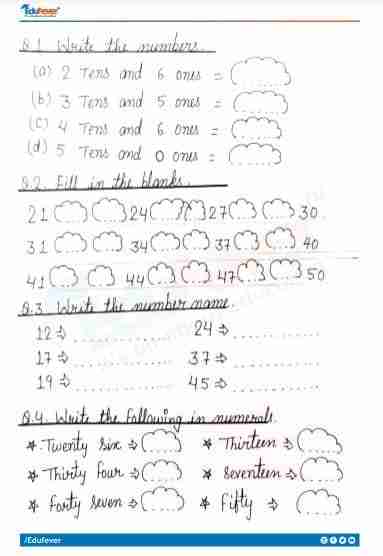 Edufever
Q.1 Write the numbers.
(a) 2 Tens and 6 ones =
(b) 3 Tens and 5 ones =
(c) 4 Tens and 6 ones =
(d) 5 Tens and 0 ones =
Q.2. Fill in the blanks.
21 24 27 30
31 34 37 40
41 44 47 50
Q.3. Write the number name.
12 ⇒ .............. 24 ⇒ ..............
17 ⇒ .............. 37 ⇒ ..............
19 ⇒ .............. 45 ⇒ ..............
Q.4. Write the following in numerals.
* Twenty six ⇒ * Thirteen ⇒
* Thirty four ⇒ * Seventeen ⇒
* Forty seven ⇒ * Fifty ⇒
/Edufever